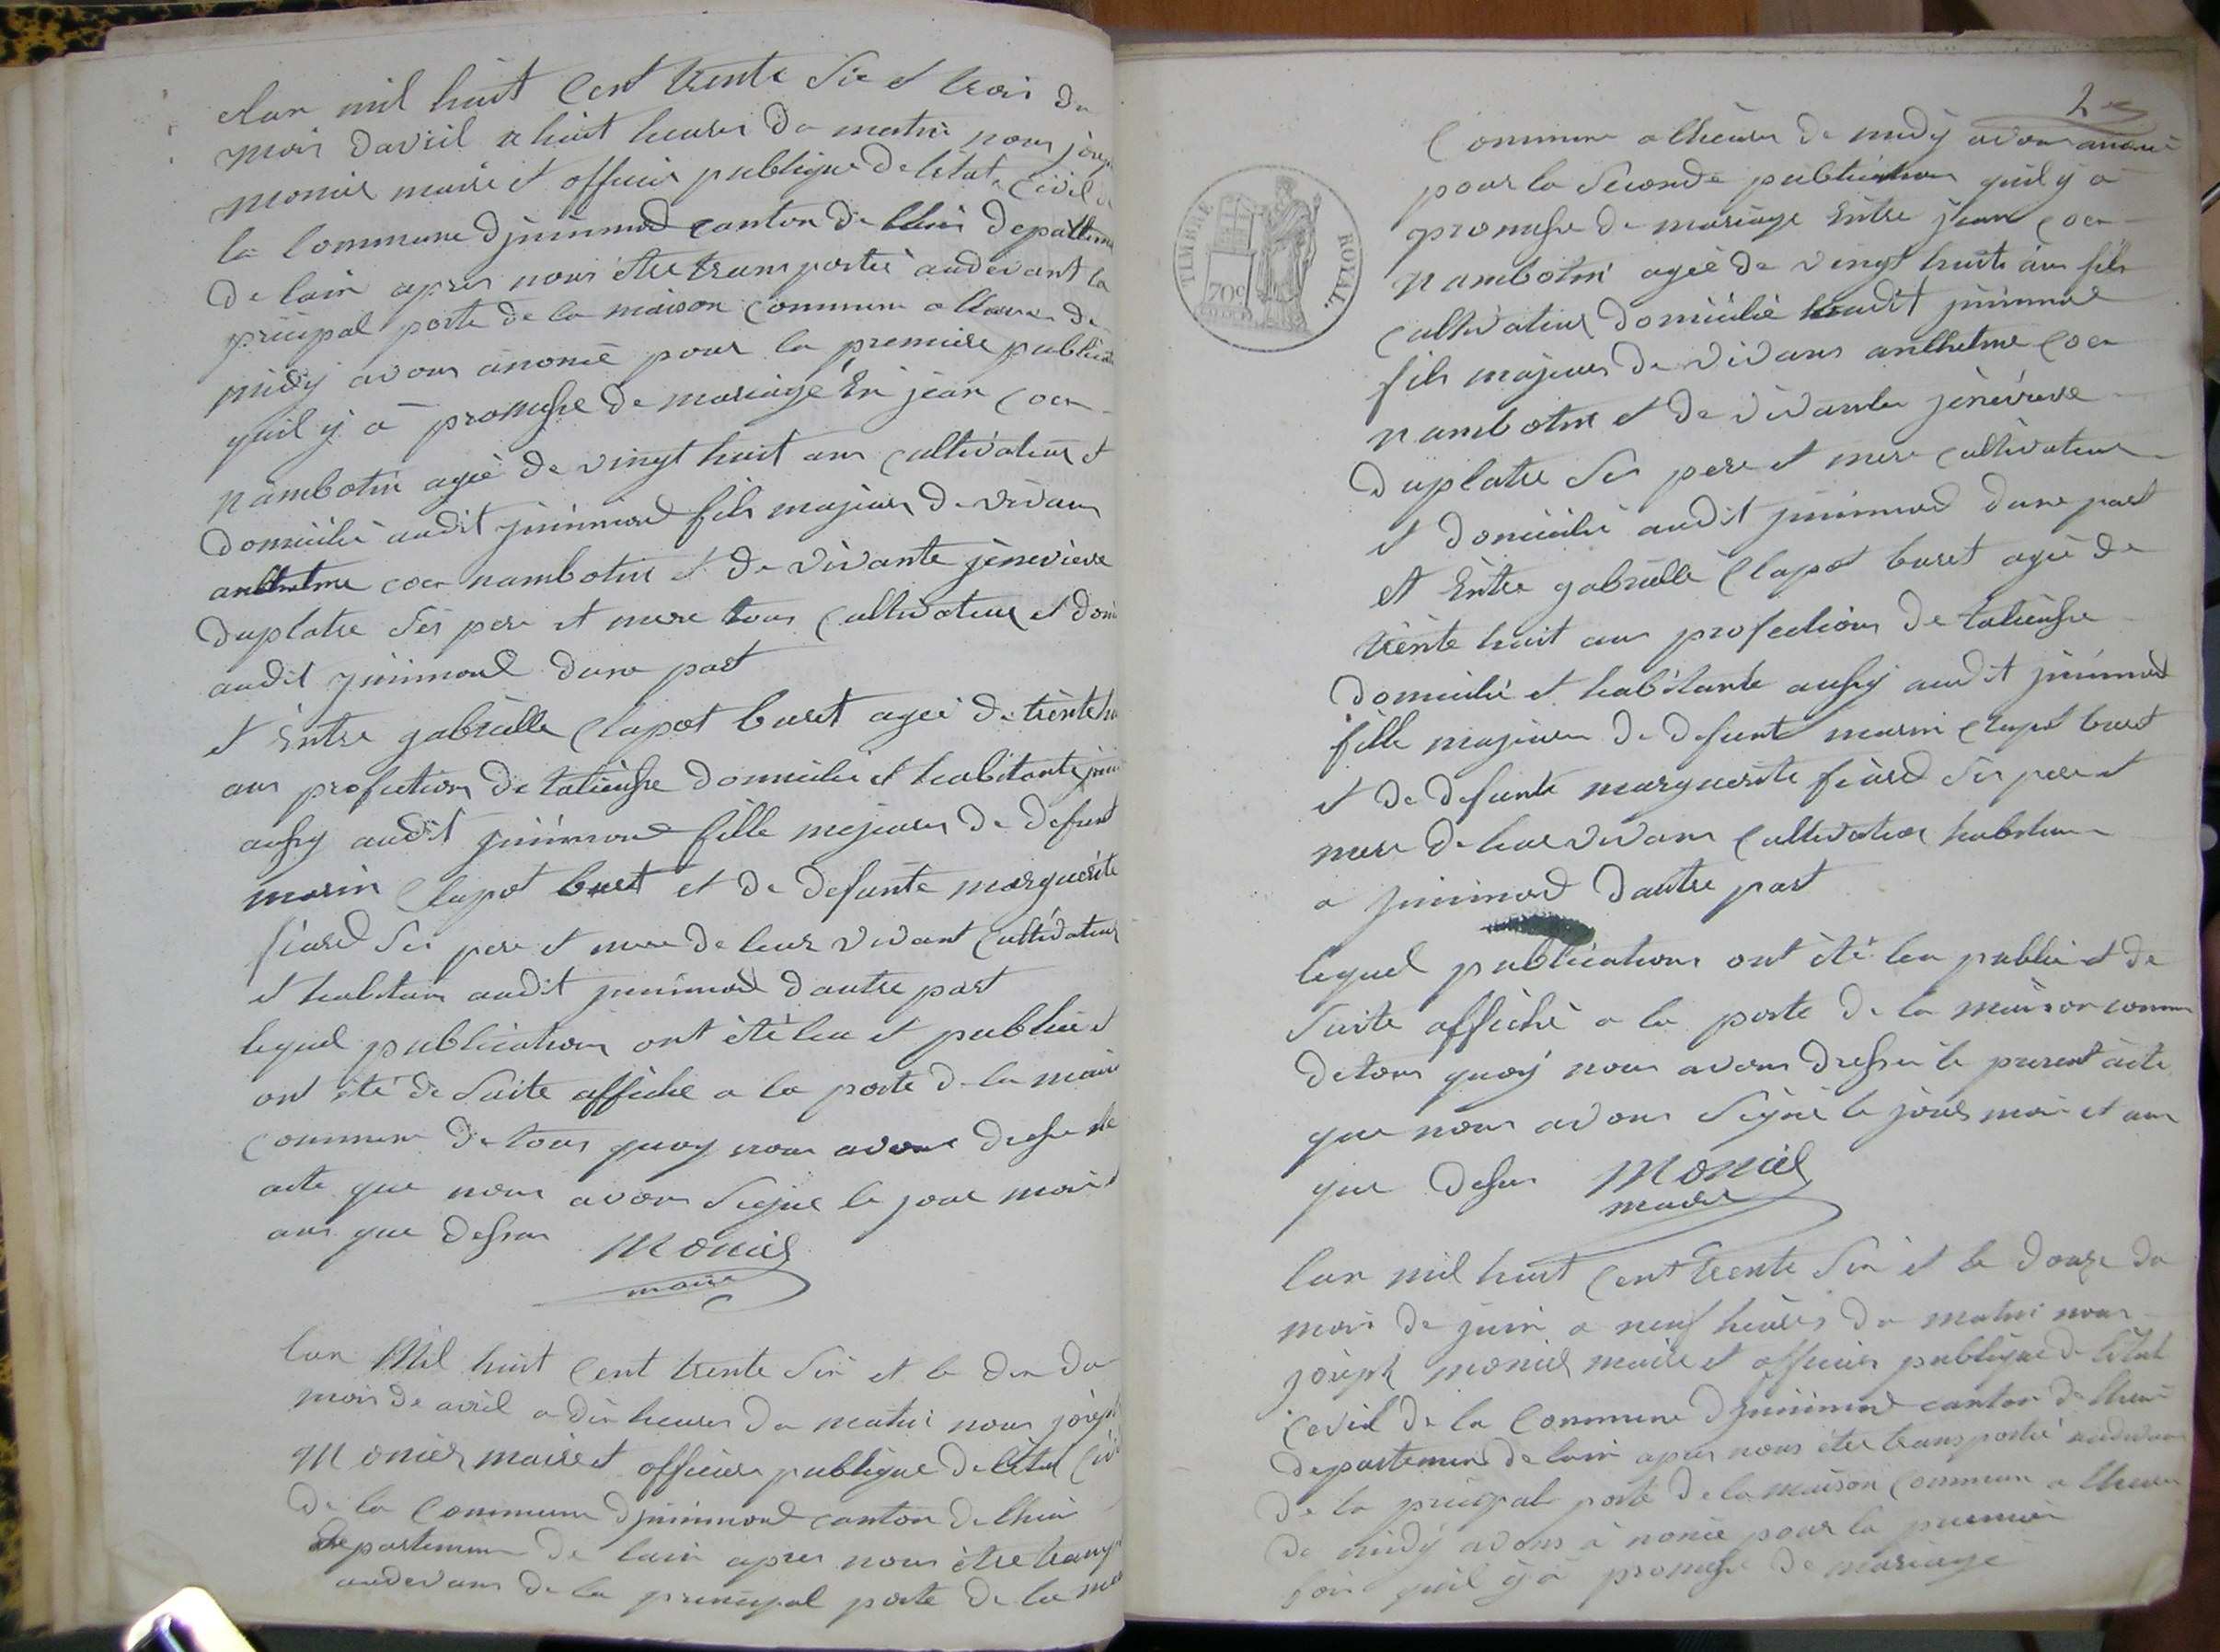 Lan mil huit Cent trente Six et trois du
mois davril a huit heures du matin nous josep
monier maire et officier publique de letat Civil de
la Commune djnnimond canton de lhuis depatteme
de lain apres nous être transportié audevant la
pricipal porte de la maison Commune a lheure de
midy avons anoncé pour la premiere publica
quil y a promesse de mariage En jean coer
nambotin ageé de vingt huit ans Cultivateur et
domicilié audit jnnimond fils majeur de vivans
anthelme coer nambotin et de vivante jenevieve
duplatre Ses pere et mere tous Cultivateur et domi
audit jnnimond dune part
et Entre gabrielle Clapot buret ageé de trente hu
ans profection de talieusse domicilié et habitante
aussy audit jnnimond fille majeure de defunt
marin Clapot buret et de defunte marguerite
fiard Ses pere et mere de leur vivant Cultivateur
et habitans audit jnnimond dautre part
lequel publications ont été leu et publié et
ont été de Suite affiché a la porte de la mais
Commune de tous quoy nous avons dressé le
acte que nous avons Signe le jour mois et
ans que dessus Monier
maire
Lan Mil huit Cent trente Six et le dix du
mois de avril a dix heures du matin nous joseph
Monier maire et officier publique de létat Civ
de la Commune djnnimond canton de lhuis
departement de lain apres nous être transp
audevans de la principal porte de la mai
2
Commune a lheure de midy avons anoncé
pour la Seconde publication quil y a
promesse de mariage Entre jean coer
nambotin ageé de vingt huit ans fils
Cultivateur domicilié audit jnnimond
fils majeur de vivans anthelme coer
nambotin et de vivante jenevieve
duplatre Ses pere et mere Cultivateur
et domicilié audit jnnimond dune part
et Entre gabrielle Clapot buret ageé de
trente huit ans profection de talieusse
domicilié et habitante aussy audit jnnimond
fille majeure de defunt marin Clapot buret
et de defunte marguerite fiard Ses pere et
mere de leur vivans Cultivateur habitans
a jnnimond dautre part
lequel publications ont été leu publié et de
Suite affiché a la porte de la maison commu
de tous quoy nous avons dressé le present acte
que nous avons Signé le jour mois et ans
que desus Monier
maire
TIMBRE ROYAL
70c
Lan mil huit Cent trente Six et le douze du
mois de juin a neuf heures du matin nous
joseph monier maire et officier publique de létat
Cevil de la Commune djnnimond canton de lhuis
departement de lain apres nous être transportié audevans
de la pricipal porte de la maison Commune a lheure
de midy avons anoncé pour la premier
fois quil y a promesse de mariage